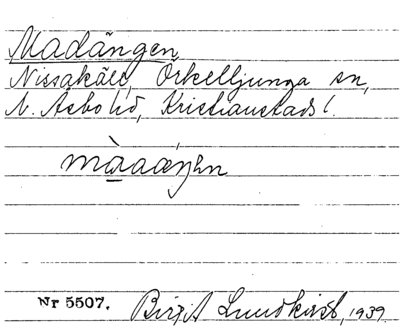 Madängen
Nissakäll, Örkelljunga sn,
N. Åsbo hd, Kristianstads l.
Nr 5507. Birgit Lundkvist, 1939